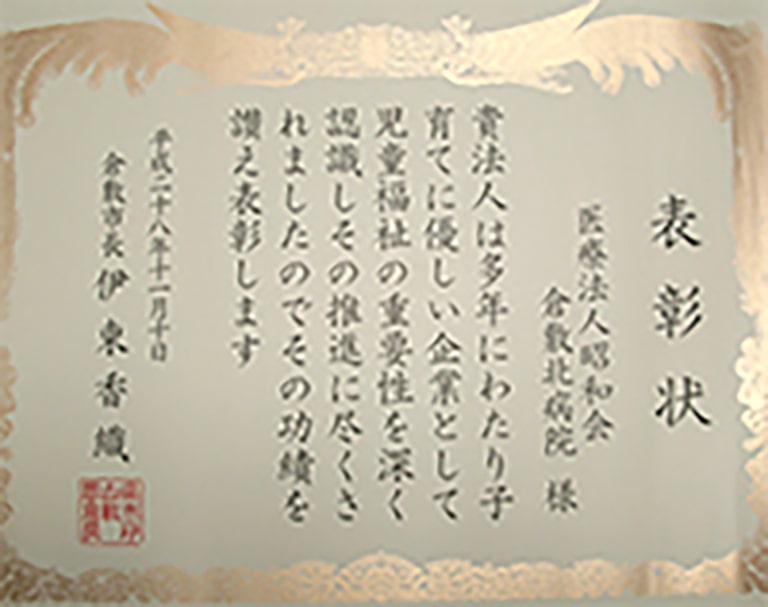 表彰状
医療法人昭和会
倉敷北病院 様
貴法人は多年にわたり子
育てに優しい企業として
児童福祉の重要性を深く
認識しその推進に尽くさ
れましたのでその功績を
讃え表彰します
平成二十八年十一月十日
倉敷市長 伊東香織